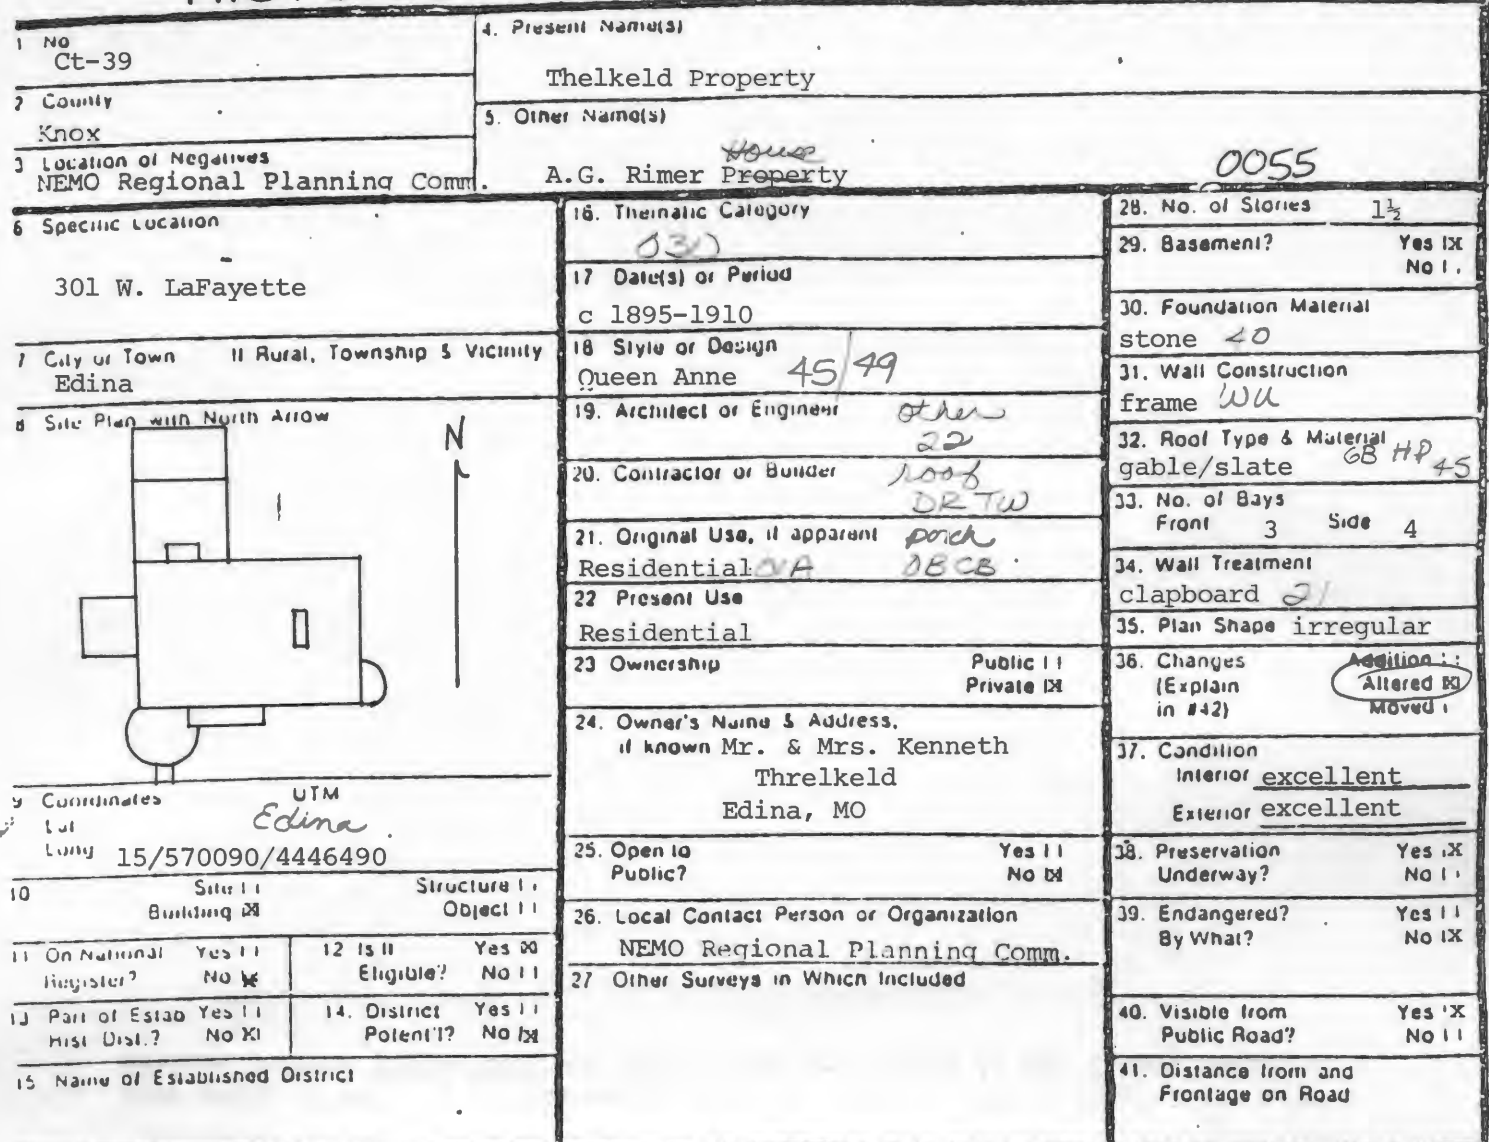 1 No
Ct-39
2 County
Knox
3 Location of Negatives
NEMO Regional Planning Comm.
4. Present Name(s)
Thelkeld Property
5. Other Name(s)
House
A.G. Rimer Property
0055
6 Specific Location
301 W. LaFayette
7 City or Town If Rural, Township & Vicinity
Edina
8 Site Plan with North Arrow
N
9 Coordinates UTM
Lat
Edina
Long
15/570090/4446490
10 Site Structure
Building X Object
11 On National Register? Yes No X
12 Is It Eligible? Yes X No
13 Part of Estab Hist Dist.? Yes No X
14. District Potent'l? Yes No X
15 Name of Established District
16. Thematic Category
030
17 Date(s) or Period
c 1895-1910
18 Style or Design
Queen Anne 45/49
19. Architect or Engineer
other
22
20. Contractor or Builder
roof
DR TW
21. Original Use, if apparent
porch
Residential
22 Present Use
Residential
23 Ownership Public
Private X
24. Owner's Name & Address,
if known Mr. & Mrs. Kenneth
Threlkeld
Edina, MO
25. Open to Yes
Public? No X
26. Local Contact Person or Organization
NEMO Regional Planning Comm.
27 Other Surveys in Which Included
28. No. of Stories 1½
29. Basement? Yes X
No
30. Foundation Material
stone 40
31. Wall Construction
frame WU
32. Roof Type & Material
gable/slate GB HP 45
33. No. of Bays
Front 3 Side 4
34. Wall Treatment
clapboard 21
35. Plan Shape irregular
36. Changes Addition
(Explain Altered X
in #42) Moved
37. Condition
Interior excellent
Exterior excellent
38. Preservation Yes X
Underway? No
39. Endangered? Yes
By What? No X
40. Visible from Yes X
Public Road? No
41. Distance from and
Frontage on Road